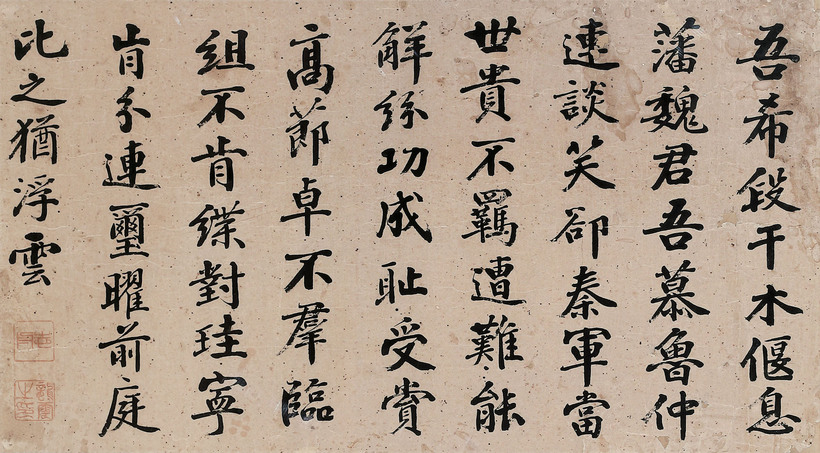 吾希段干木偃息
藩魏君吾慕魯仲
連談笑卻秦軍當
世貴不羈遭難能
觧紛功成耻受賞
高節卓不羣臨
組不肯緤對珪寧
肯分連璽曜前庭
比之猶浮雲